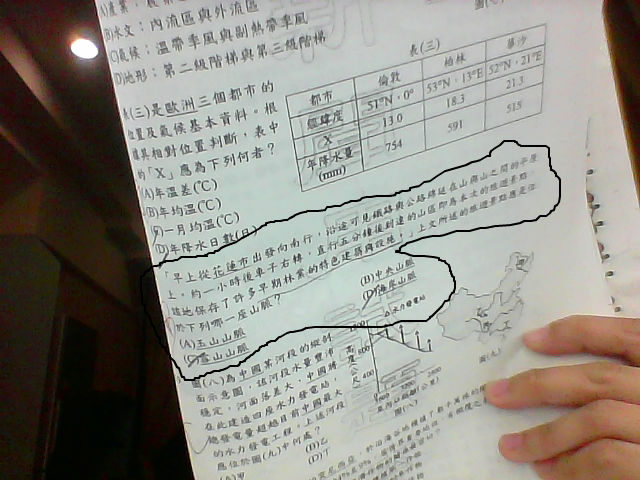 (B)水文：內流區與外流區
(C)氣候：溫帶季風與副熱帶季風
(D)地形：第二級階梯與第三級階梯
表(三)是歐洲三個都市的
位置及氣候基本資料。根
據其相對位置判斷，表中
的「X」應為下列何者？
(A)年溫差(℃)
(B)年均溫(℃)
(C)一月均溫(℃)
(D)年降水日數(日)
表(三)
都市 倫敦 柏林 華沙
經緯度 51°N，0° 53°N，13°E 52°N，21°E
X 13.0 18.3 21.3
年降水量(mm) 754 591 515
「早上從花蓮市出發向南行，沿途可見鐵路與公路綿延在山與山之間的平原
上，約一小時後車子右轉，直行五分鐘後到達的山區即為本次的旅遊景點，
該地保存了許多早期林業的特色建築與設施。」上文所述的旅遊景點應是位
於下列哪一座山脈？
(A)玉山山脈
(B)中央山脈
(C)雪山山脈
(D)海岸山脈
圖(八)為中國某河段的縱剖
面示意圖，該河段水量豐沛
穩定，河面落差大，中國將
在此建造四座水力發電站，
總發電量超越目前中國最大
的水力發電工程。上述河段
應位於圖(九)中何處？
(B)乙
(D)丁
水力發電站
圖(八)
圖(九)